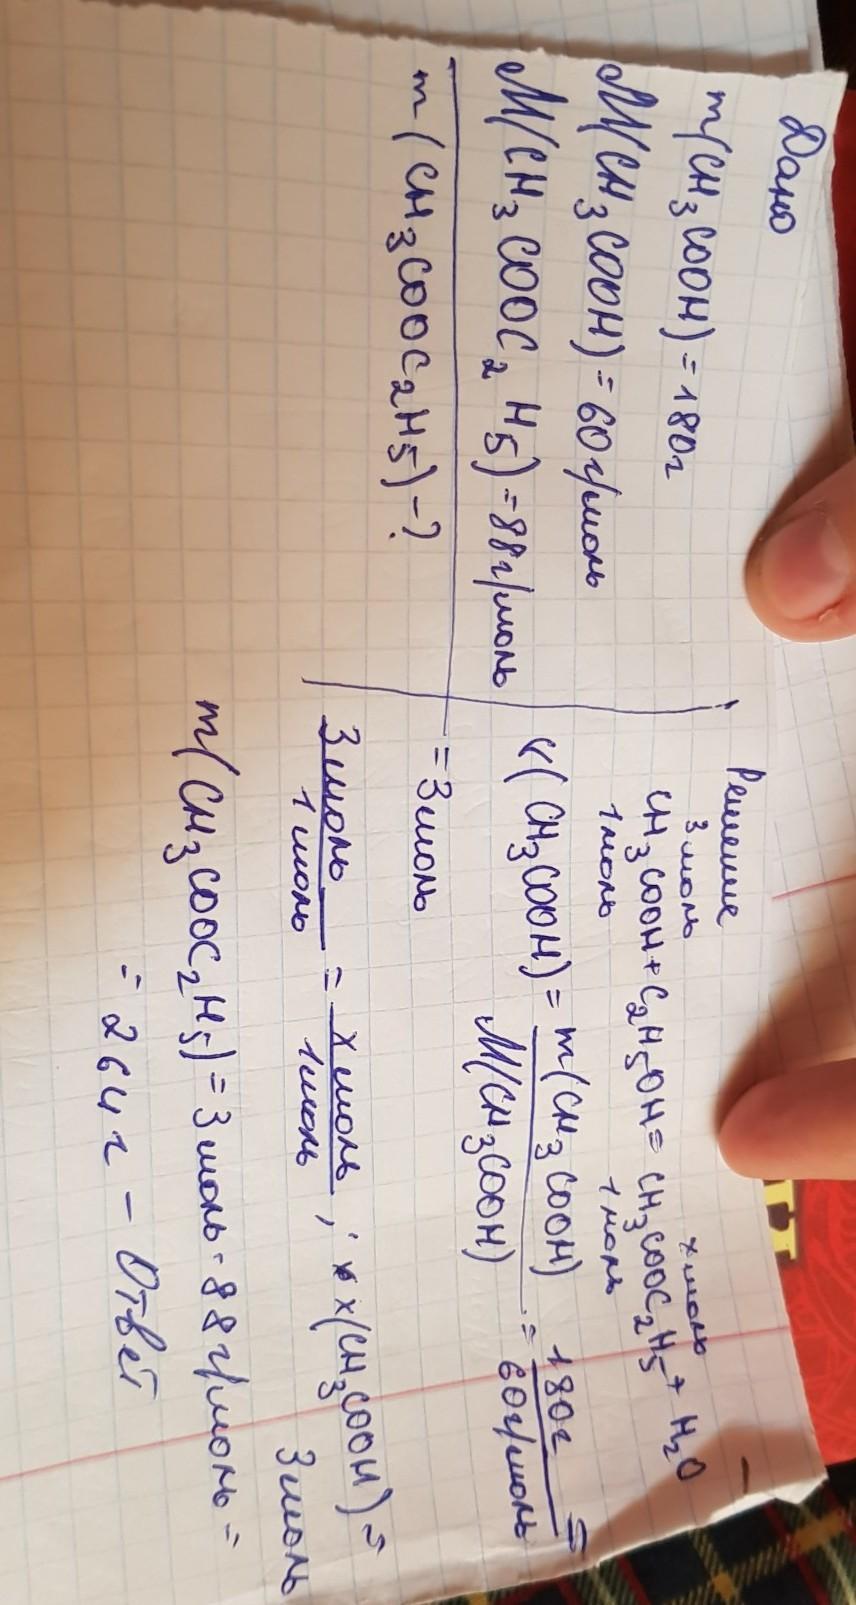 Дано
m(CH3COOH) = 180г
M(CH3COOH) = 60г/моль
M(CH3COOC2H5) = 88г/моль
m(CH3COOC2H5) - ?
Решение
3 моль х моль
CH3COOH + C2H5OH = CH3COOC2H5 + H2O
1 моль 1 моль
ν(CH3COOH) = m(CH3COOH) / M(CH3COOH) = 180г / 60г/моль =
= 3 моль
3 моль / 1 моль = х моль / 1 моль ; х(CH3COOH) =
3 моль
m(CH3COOC2H5) = 3 моль · 88г/моль =
= 264 г - Ответ